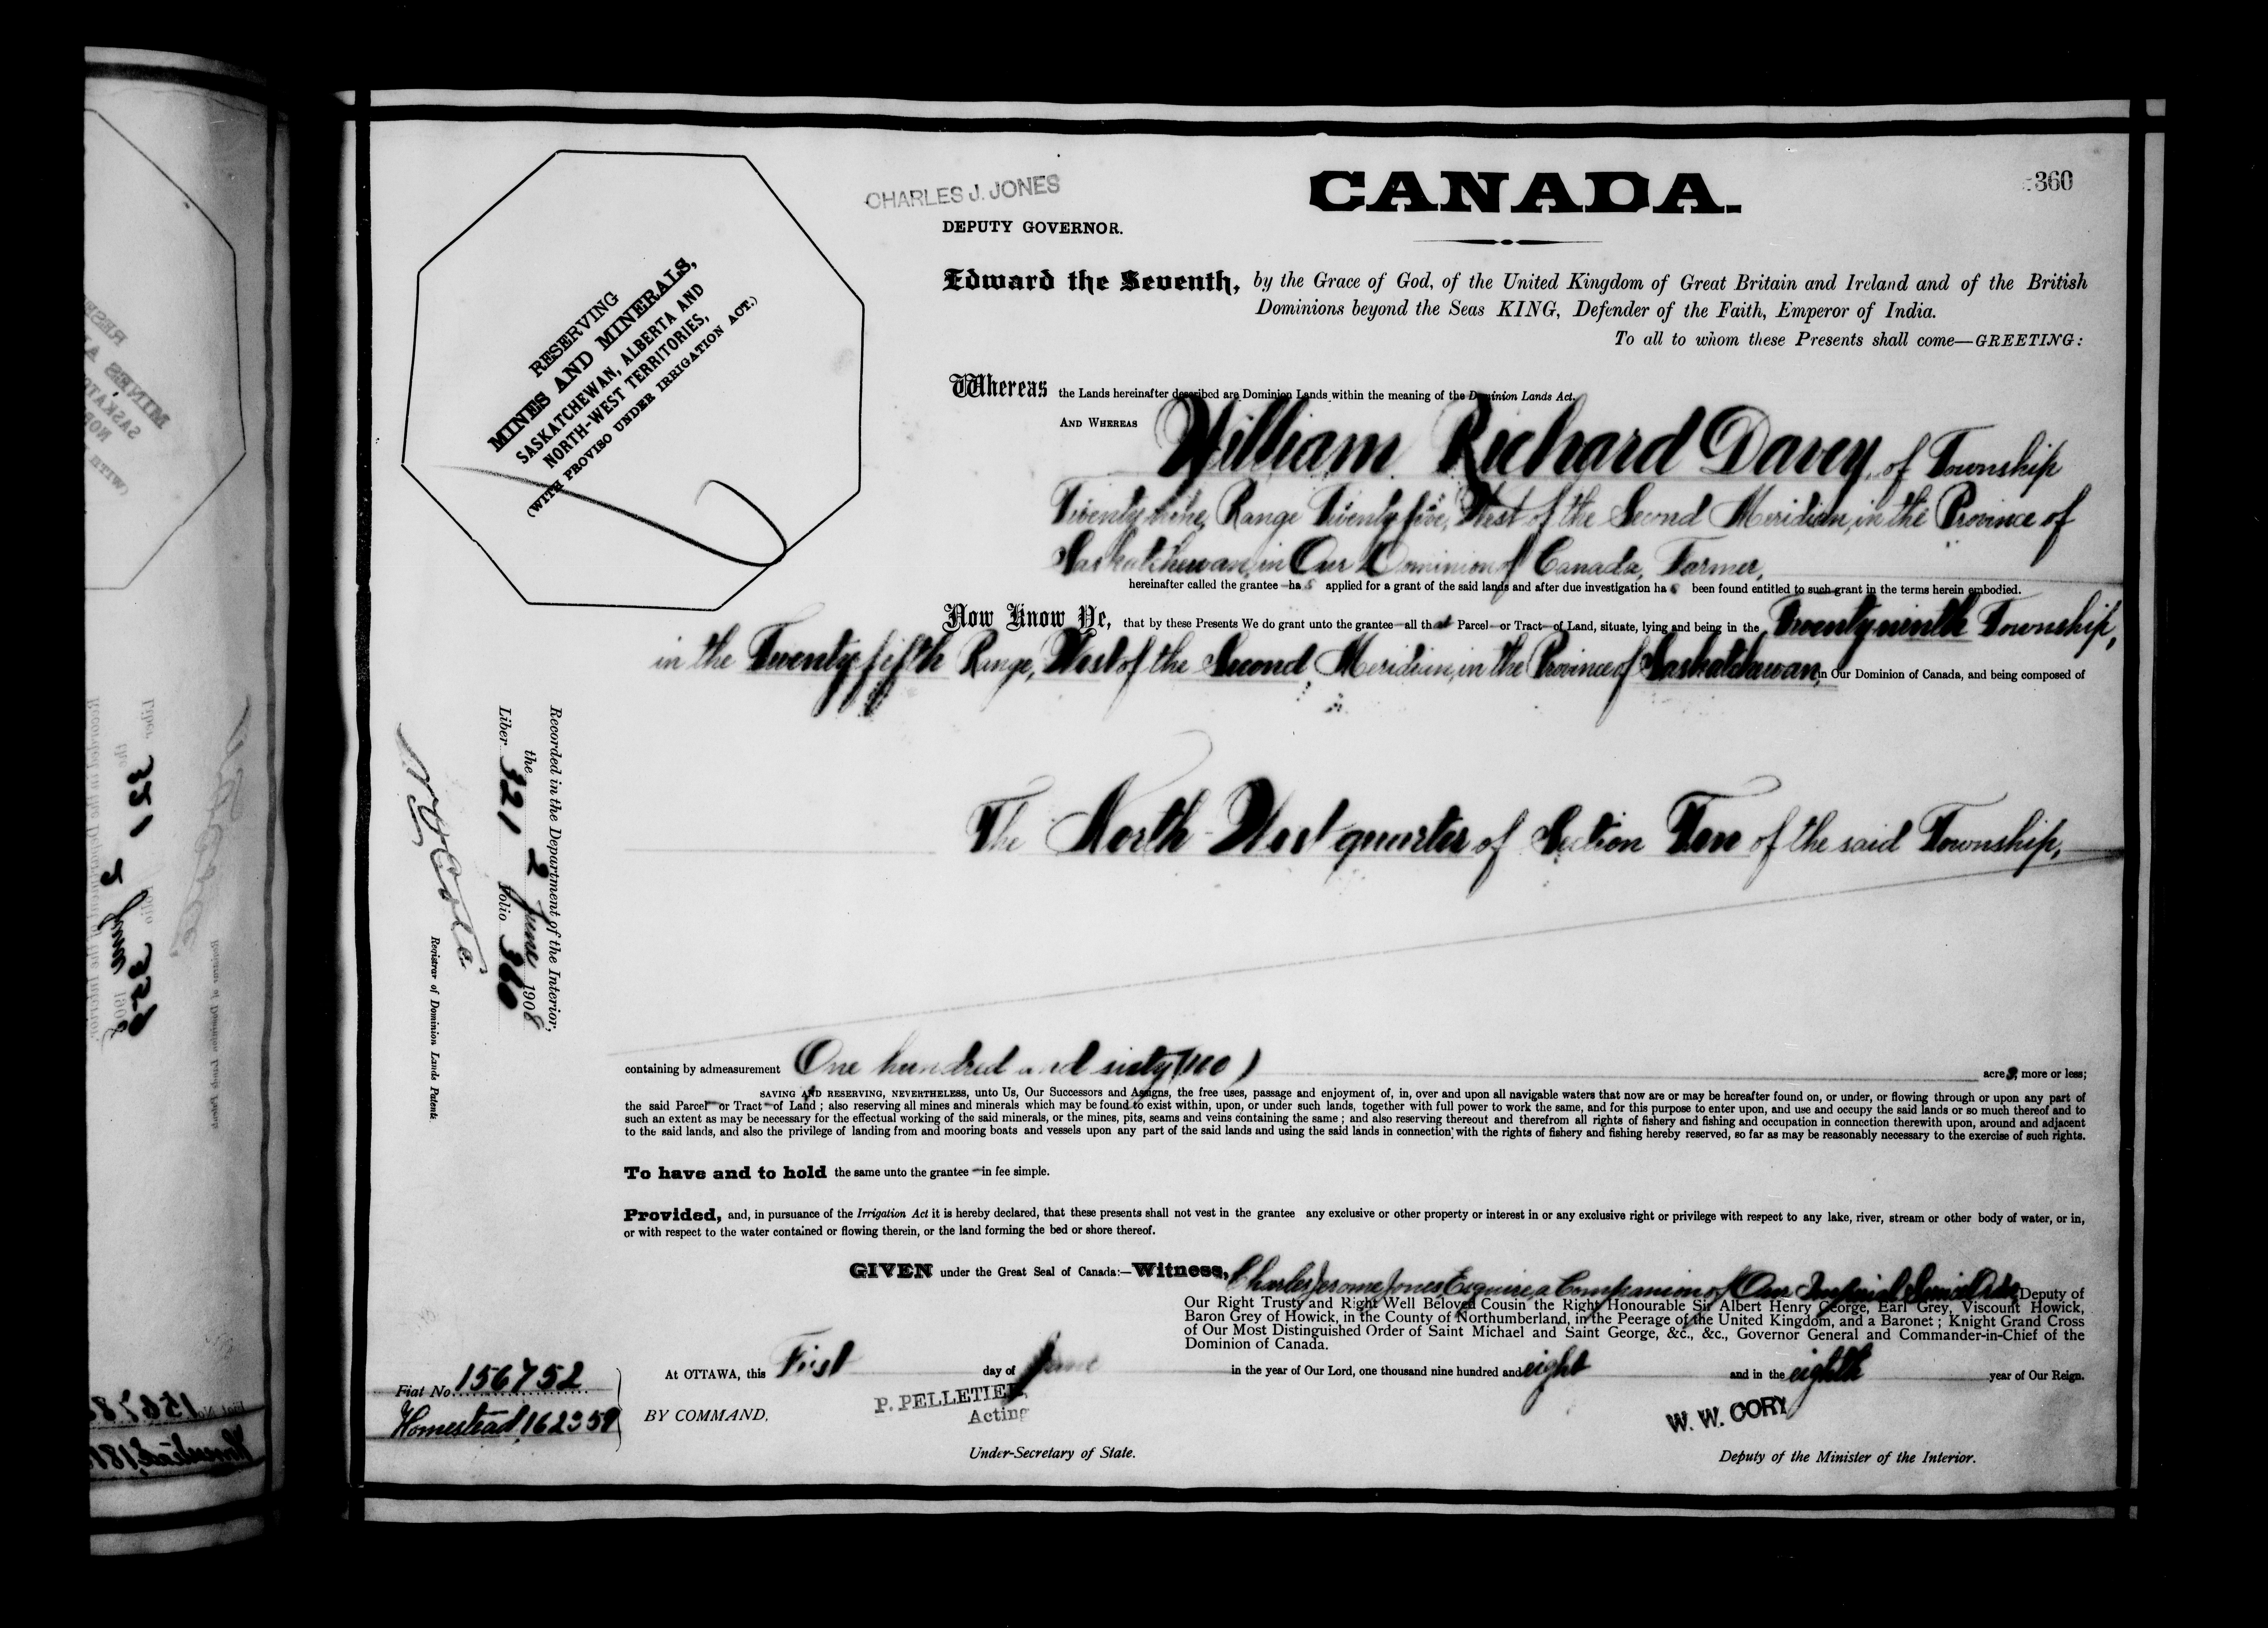 CHARLES J. JONES
DEPUTY GOVERNOR.
CANADA.
360
RESERVING
MINES AND MINERALS,
SASKATCHEWAN, ALBERTA AND
NORTH-WEST TERRITORIES,
(WITH PROVISO UNDER IRRIGATION ACT.)
Edward the Seventh, by the Grace of God, of the United Kingdom of Great Britain and Ireland and of the British
Dominions beyond the Seas KING, Defender of the Faith, Emperor of India.
To all to whom these Presents shall come—GREETING:
Whereas the Lands hereinafter described are Dominion Lands within the meaning of the Dominion Lands Act.
AND WHEREAS William Richard Davey, of Township
Twenty nine, Range Twenty five, West of the Second Meridian, in the Province of
Saskatchewan, in Our Dominion of Canada, Farmer,
hereinafter called the grantee has applied for a grant of the said lands and after due investigation has been found entitled to such grant in the terms herein embodied.
Now Know Ye, that by these Presents We do grant unto the grantee all that Parcel or Tract of Land, situate, lying and being in the Twenty ninth Township,
in the Twenty fifth Range, West of the Second Meridian, in the Province of Saskatchewan, in Our Dominion of Canada, and being composed of
The North-West quarter of Section Ten of the said Township,
Recorded in the Department of the Interior,
the 2 June 1908
Liber 321 Folio 360
Registrar of Dominion Lands Patents.
containing by admeasurement One hundred and sixty (160) acres, more or less;
SAVING AND RESERVING, NEVERTHELESS, unto Us, Our Successors and Assigns, the free uses, passage and enjoyment of, in, over and upon all navigable waters that now are or may be hereafter found on, or under, or flowing through or upon any part of
the said Parcel or Tract of Land; also reserving all mines and minerals which may be found to exist within, upon, or under such lands, together with full power to work the same, and for this purpose to enter upon, and use and occupy the said lands or so much thereof and to
such an extent as may be necessary for the effectual working of the said minerals, or the mines, pits, seams and veins containing the same; and also reserving thereout and therefrom all rights of fishery and fishing and occupation in connection therewith upon, around and adjacent
to the said lands, and also the privilege of landing from and mooring boats and vessels upon any part of the said lands and using the said lands in connection with the rights of fishery and fishing hereby reserved, so far as may be reasonably necessary to the exercise of such rights.
To have and to hold the same unto the grantee in fee simple.
Provided, and, in pursuance of the Irrigation Act it is hereby declared, that these presents shall not vest in the grantee any exclusive or other property or interest in or any exclusive right or privilege with respect to any lake, river, stream or other body of water, or in,
or with respect to the water contained or flowing therein, or the land forming the bed or shore thereof.
GIVEN under the Great Seal of Canada:—Witness, Charles Jerome Jones, Esquire, a Companion of Our Imperial Service Order, Deputy of
Our Right Trusty and Right Well Beloved Cousin the Right Honourable Sir Albert Henry George, Earl Grey, Viscount Howick,
Baron Grey of Howick, in the County of Northumberland, in the Peerage of the United Kingdom, and a Baronet; Knight Grand Cross
of Our Most Distinguished Order of Saint Michael and Saint George, &c., &c., Governor General and Commander-in-Chief of the
Dominion of Canada.
At OTTAWA, this First day of June in the year of Our Lord, one thousand nine hundred and eight and in the eighth year of Our Reign.
Fiat No. 156752
Homestead 162359
BY COMMAND,
P. PELLETIER,
Acting
Under-Secretary of State.
W. W. CORY
Deputy of the Minister of the Interior.